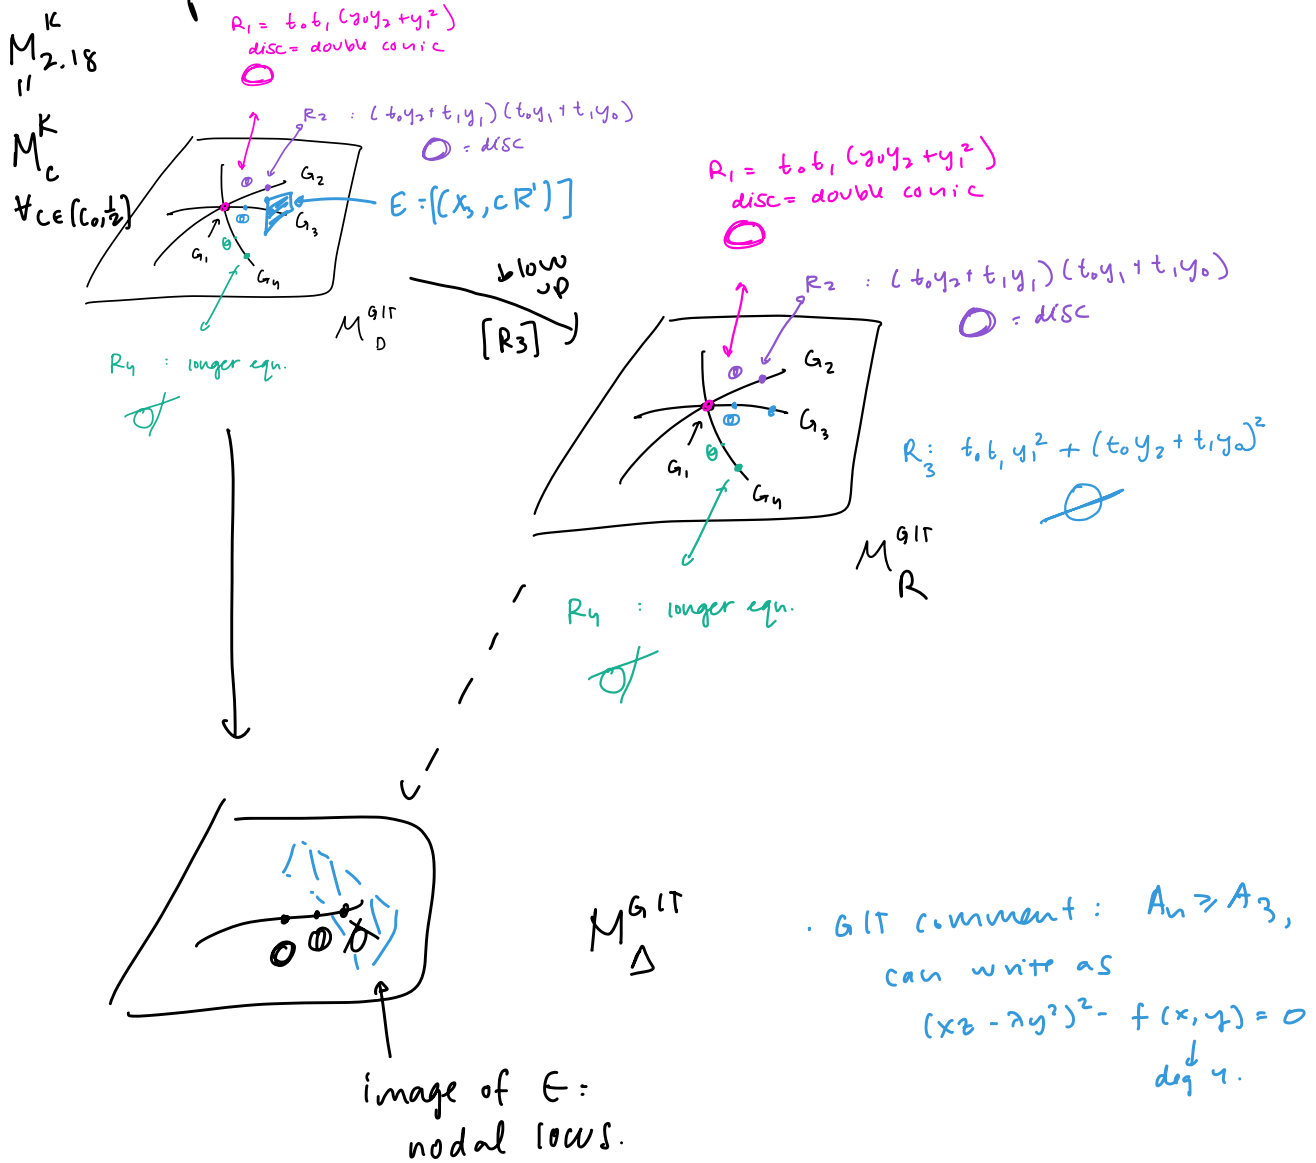 M^K_{2.18}
"
M^K_c
∀ c ∈ (c₀, 1/2)
R₁ = t₀t₁ (y₀y₂ + y₁²)
disc = double conic
R₂ : (t₀y₂ + t₁y₁)(t₀y₁ + t₁y₀)
= disc
G₂
E = {[(X₃, cR')]}
G₃
G₁
G₄
M^{GIT}_D
R₄ : longer eqn.
blow up
[R₃]
R₁ = t₀t₁ (y₀y₂ + y₁²)
disc = double conic
R₂ : (t₀y₂ + t₁y₁)(t₀y₁ + t₁y₀)
= disc
G₂
G₃
G₁
G₄
R₃: t₀t₁y₁² + (t₀y₂ + t₁y₀)²
M^{GIT}_R
R₄ : longer eqn.
M^{GIT}_Δ
image of E =
nodal locus.
· GIT comment: Aₙ ≥ A₃,
can write as
(xz - λy²)² - f(x,y) = 0
deg 4.